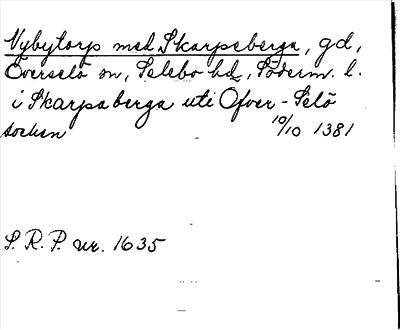 Vybytorp med Skarpeberga, gd,
Överselö sn, Selebo hd, Söderm. l.
i Skarpaberga uti Öfver-Selö
socken 10/10 1381
S. R. P. nr. 1635